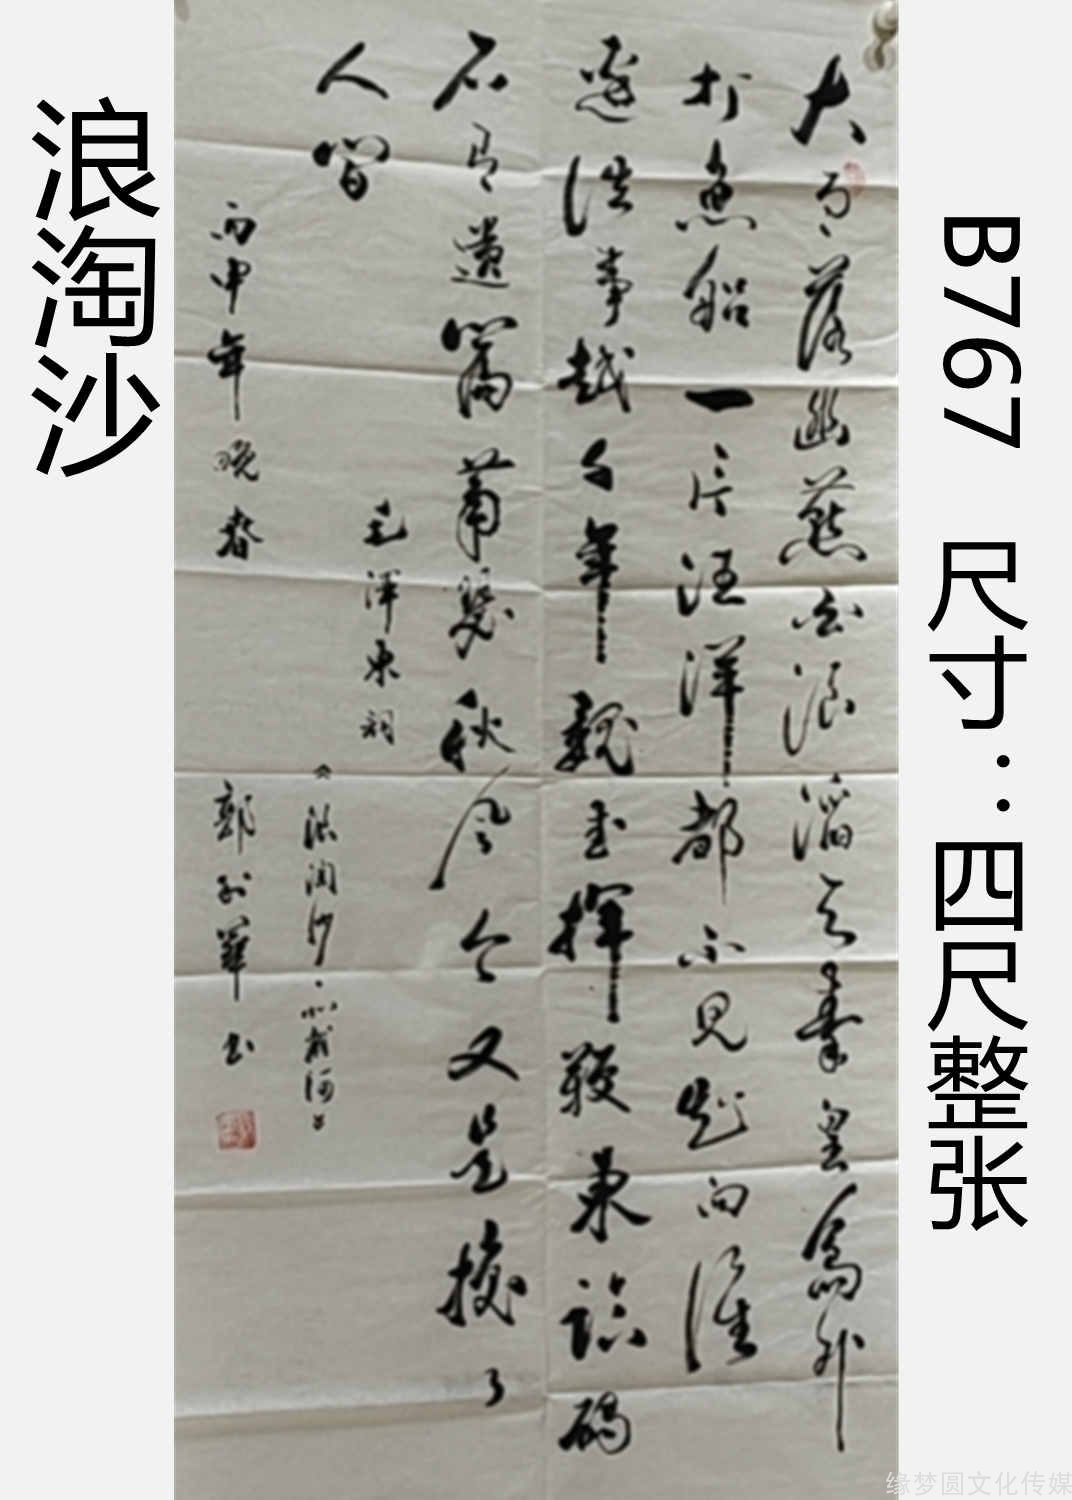 浪淘沙
B767 尺寸：四尺整张
大雨落幽燕白浪滔天秦皇岛外
打鱼船一片汪洋都不见知向谁
边往事越千年魏武挥鞭东临碣
石有遗篇萧瑟秋风今又是换了
人间
毛泽东词
《浪淘沙·北戴河》
丙申年晚春
郭 华书
缘梦圆文化传媒